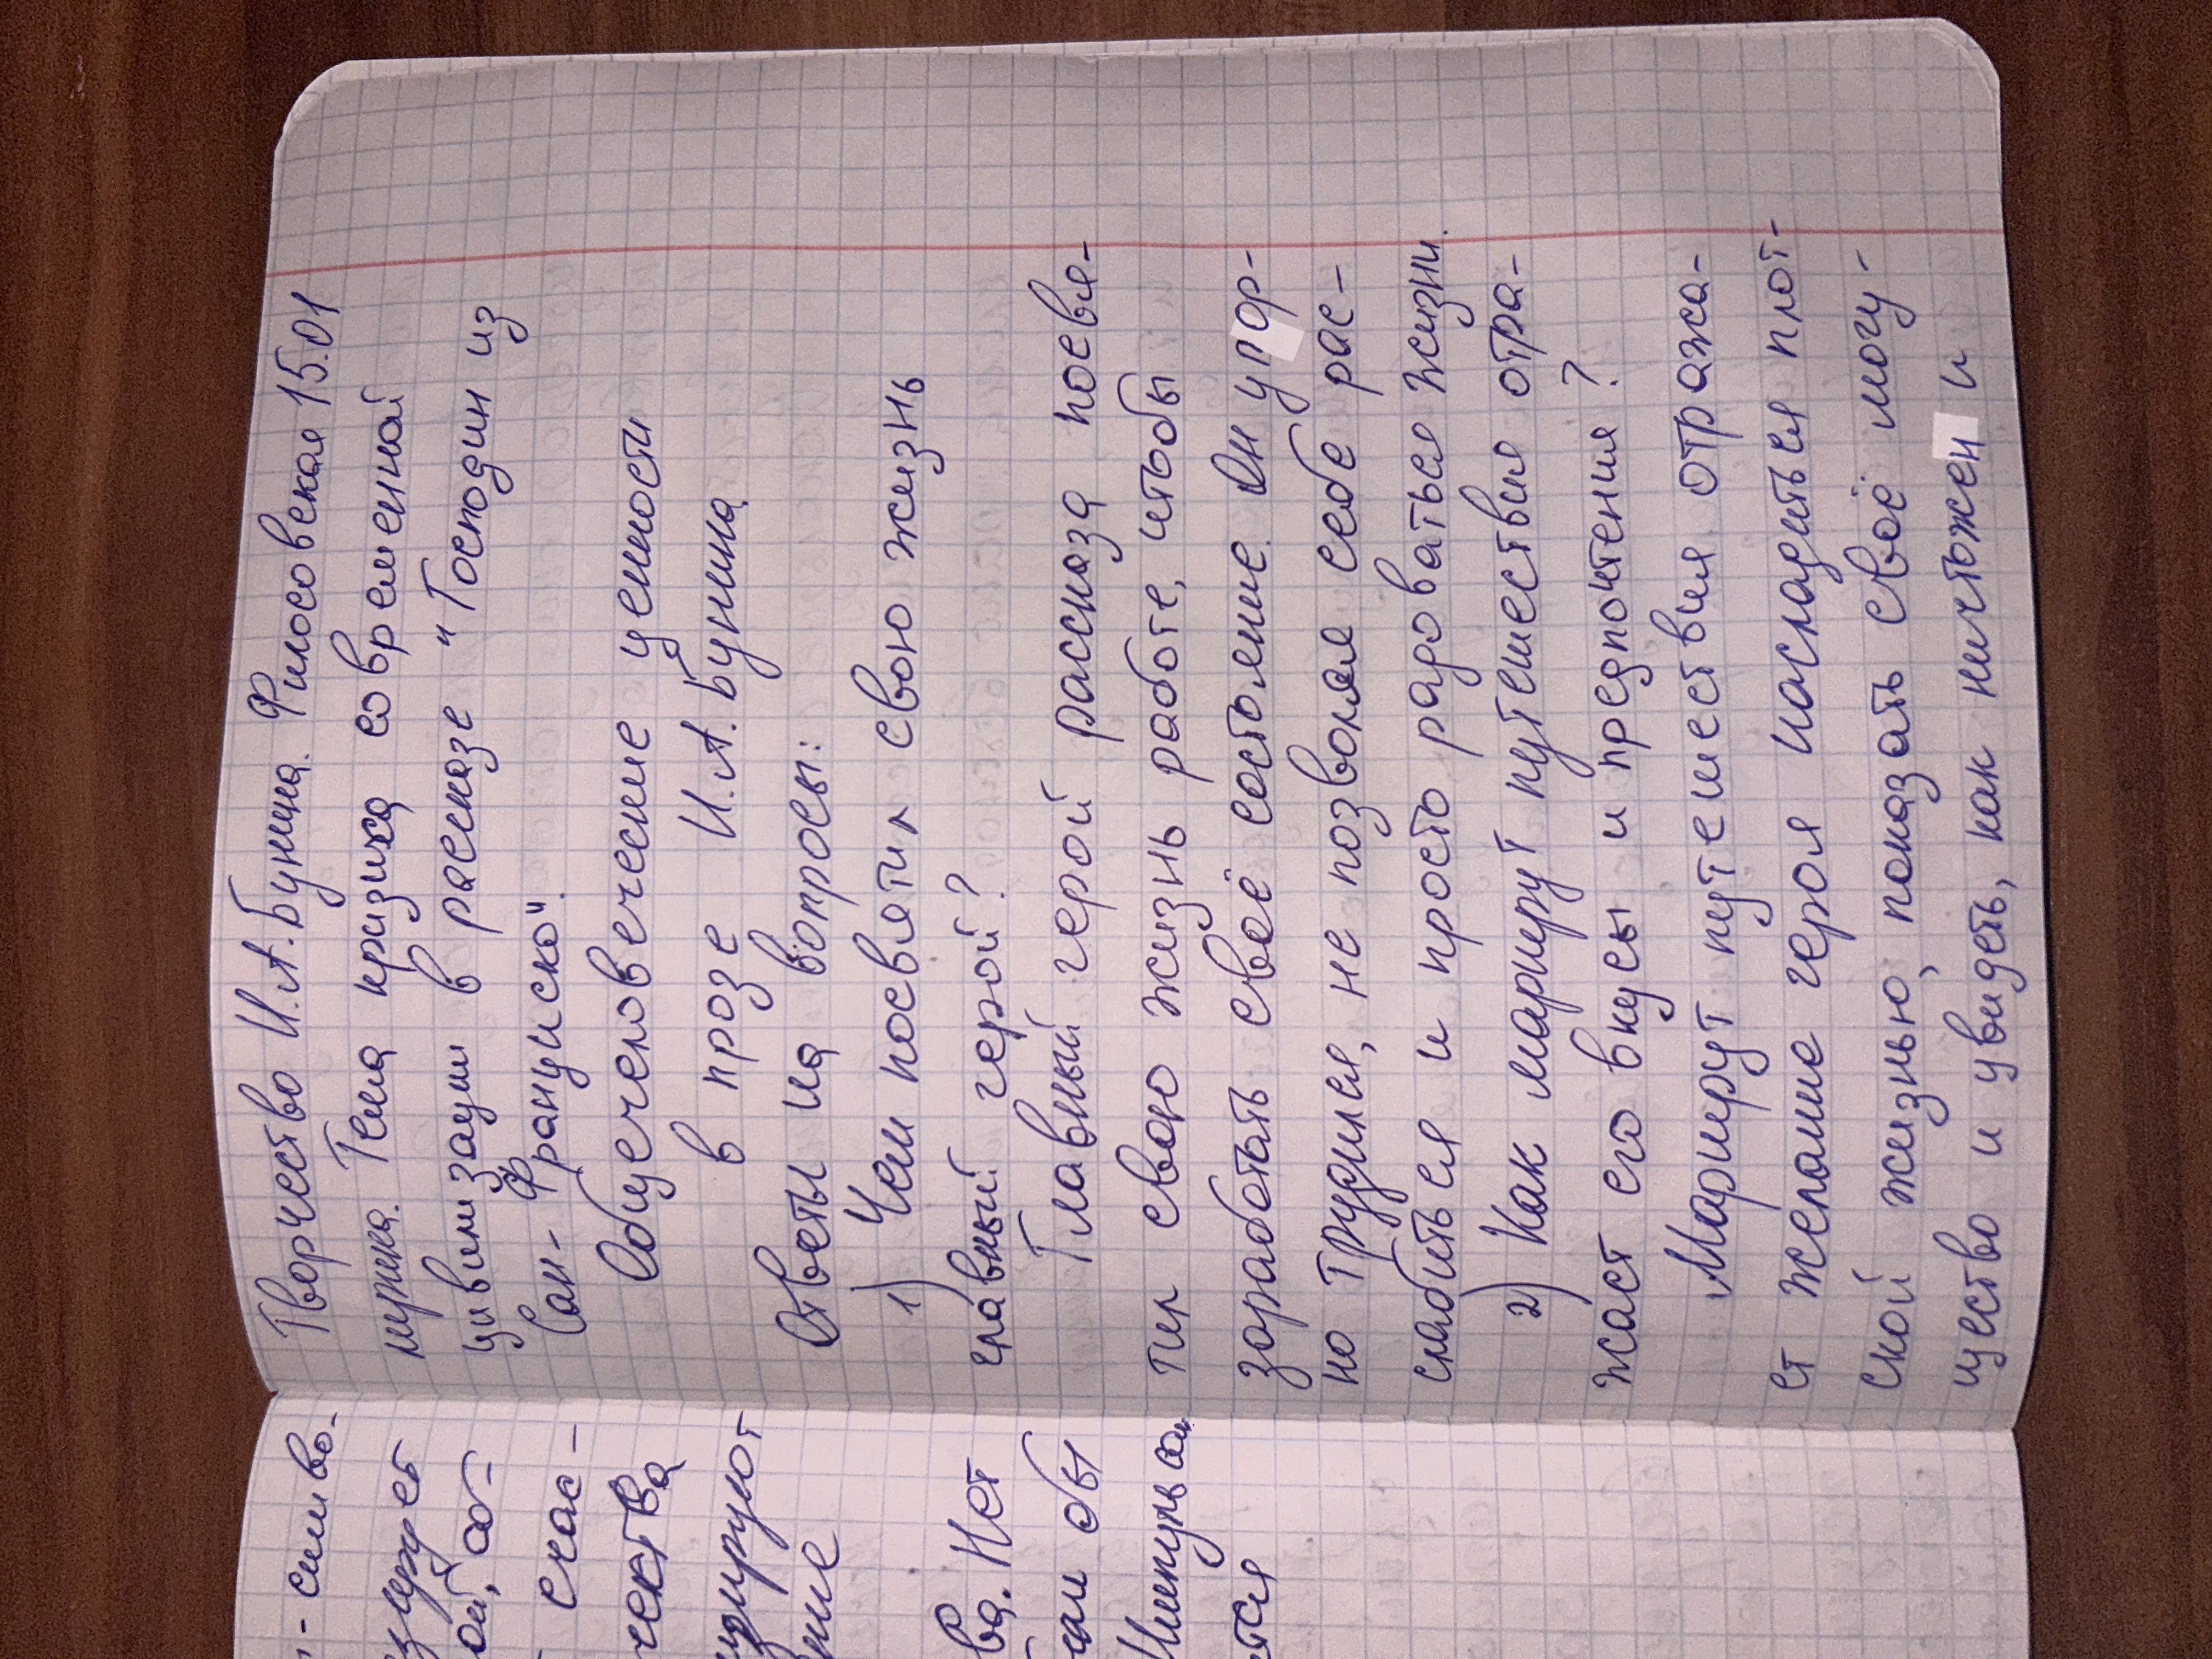 Творчество И.А.Бунина. Философская 15.01
лирика. Тема кризиса современной
цивилизации в рассказе "Господин из
Сан-Франциско".
Общечеловеческие ценности
в прозе И.А.Бунина
Ответы на вопросы:
1) Чем посвятил свою жизнь
главный герой?
Главный герой рассказа посвя-
тил свою жизнь работе, чтобы
заработать своё состояние. Он упор-
но трудился, не позволяя себе рас-
слабиться и просто радоваться жизни.
2) Как маршрут путешествия отра-
жает его вкусы и предпочтения?
Маршрут путешествия отража-
ет желание героя насладиться плот-
ской жизнью, показать своё могу-
щество и увидеть, как ничтожен и
- симво-
ой, со-
счас-
чества
ва. Нет
бы